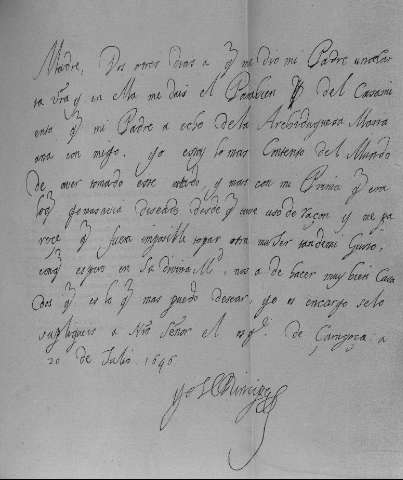 Madre, Dos otros dias a q me dio mi Padre una car
ta vra y en Ella me dais el Parabien del Casami
ento q mi Padre a echo de la Archiduquesa Maria
ana con migo. yo estoy lo mas Contento del Mundo
de aver tomado este estado, y mas con mi Prima q era
lo q yo deseaba desde q tuve uso de raçon y me pa
rece q fuera imposible topar otra muJer tan de mi Gusto,
conq espero en Su divina Md, nos a de hacer muy bien Casa
dos q es lo q mas puedo desear, yo os encargo se lo
supliqueis a Nro Señor el os gde. de Çaragoça a
20 de Julio 1646
Yo el Principe